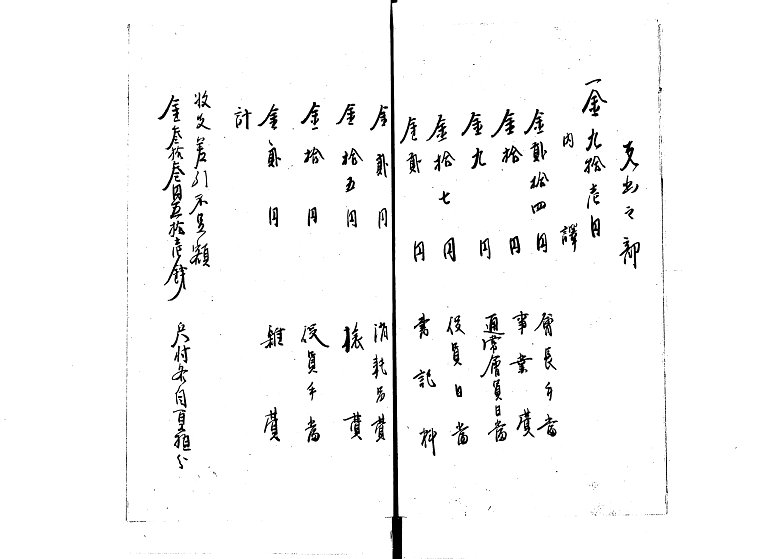 支出之部
一金九拾壱円
内譯
金貳拾四円 會長手當
金拾円 事業費
金九円 通常會員日當
金拾七円 役員日當
金貳円 書記料
金貳円 消耗品費
金拾五円 費
金拾円 役員手當
金貳円 雑費
計
収支差引不足額
金参拾参円五拾壱銭 各自負担分